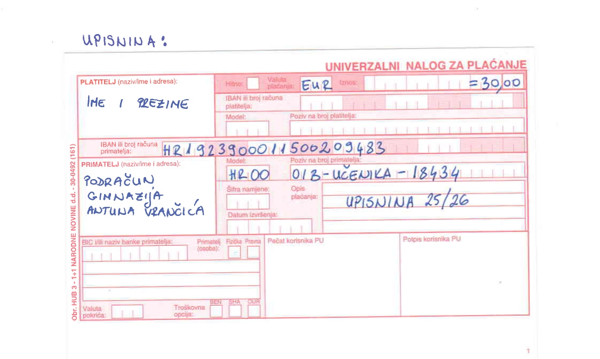 UPISNINA:
UNIVERZALNI NALOG ZA PLAĆANJE
PLATITELJ (naziv/ime i adresa):
Hitno:
Valuta plaćanja:
EUR
Iznos:
=30,00
IME I PREZIME
IBAN ili broj računa platitelja:
Model:
Poziv na broj platitelja:
IBAN ili broj računa primatelja:
HR1923900011500209483
PRIMATELJ (naziv/ime i adresa):
Model:
HR00
Poziv na broj primatelja:
OIB-UČENIKA-18434
PODRAČUN
GIMNAZIJA
ANTUNA VRANČIĆA
Šifra namjene:
Opis plaćanja:
UPISNINA 25/26
Datum izvršenja:
BIC i/ili naziv banke primatelja:
Primatelj (osoba):
Fizička
Pravna
Pečat korisnika PU
Potpis korisnika PU
Valuta pokrića:
Troškovna opcija:
BEN
SHA
OUR
Obr. HUB 3 - 1+1 NARODNE NOVINE d.d. - 30-0492 (161)
1